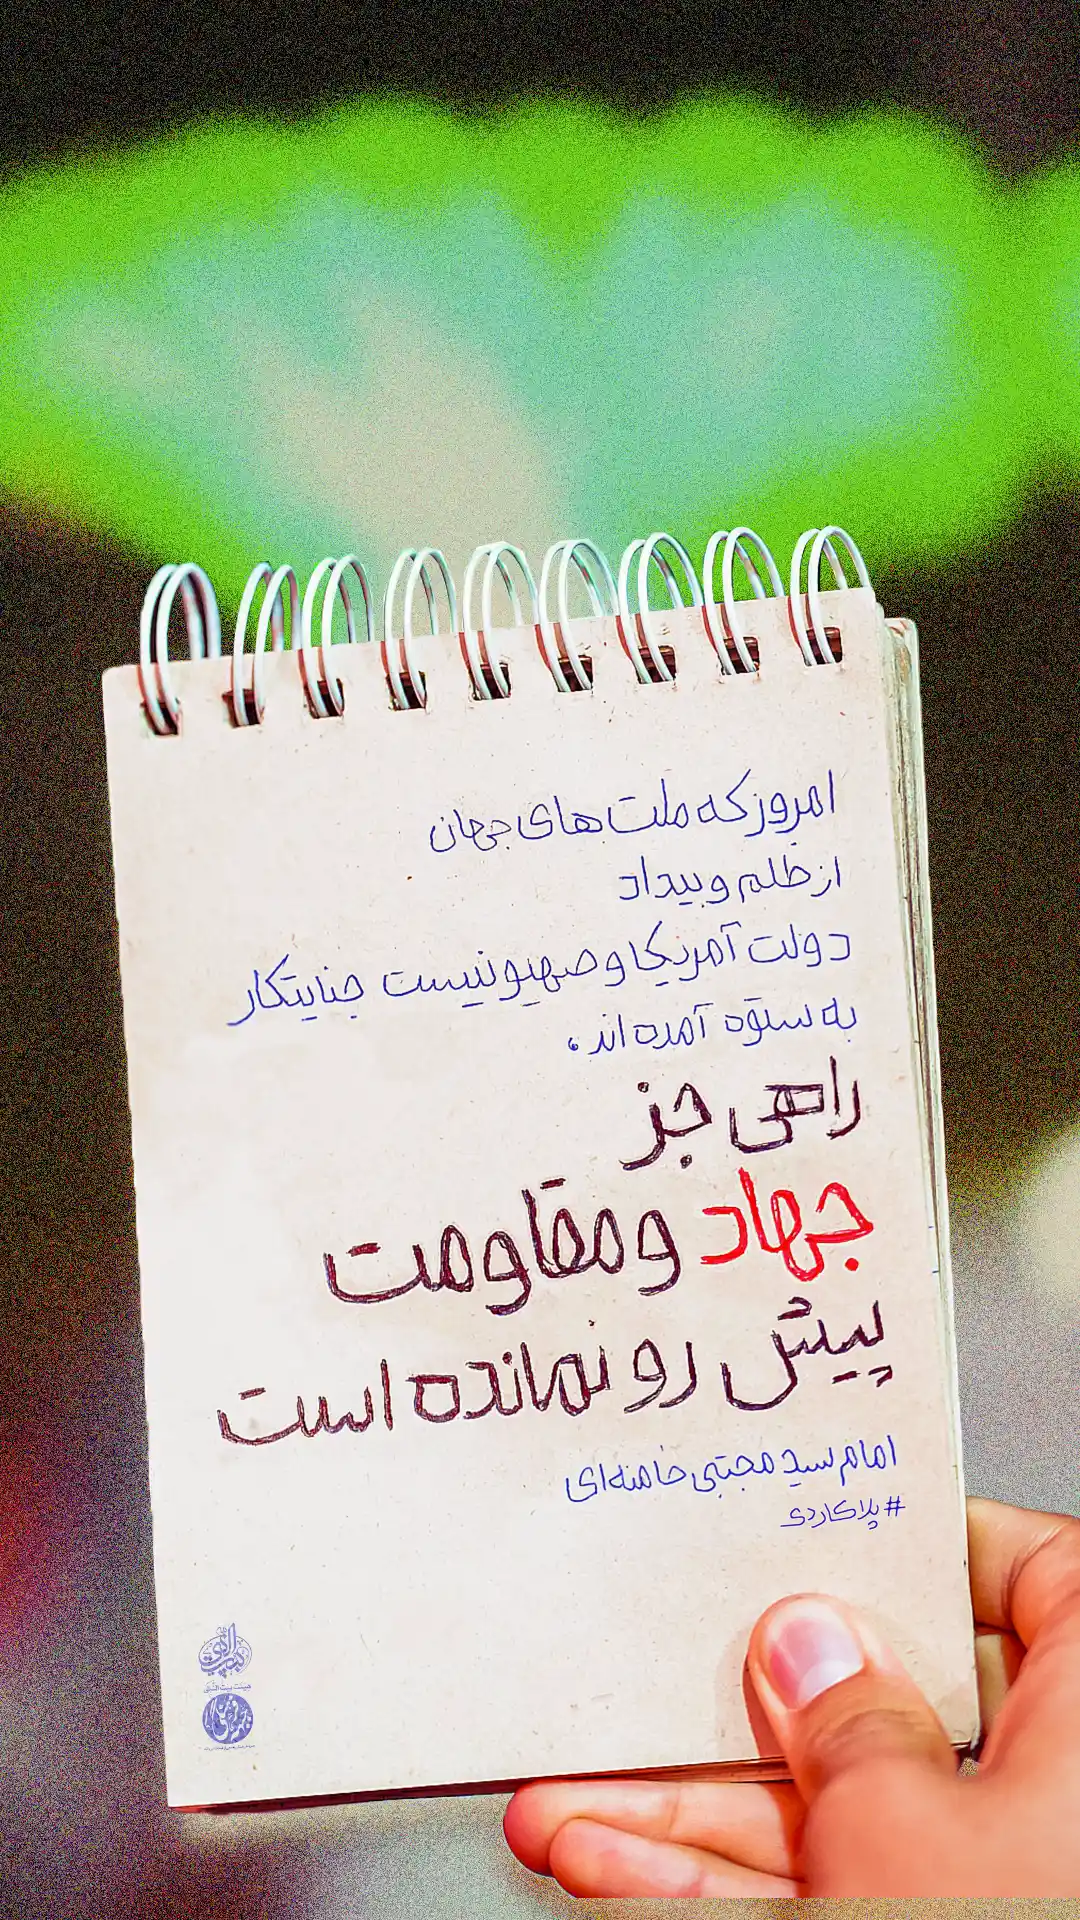 امروز که ملت های جهان
از ظلم و بیداد
دولت آمریکا و صهیونیست جنایتکار
به ستوه آمده اند.
راهی جز
جهاد و مقاومت
پیش رو نمانده است
امام سید مجتبی خامنه ای
#پلاکاردی
هیئت بیت النبی